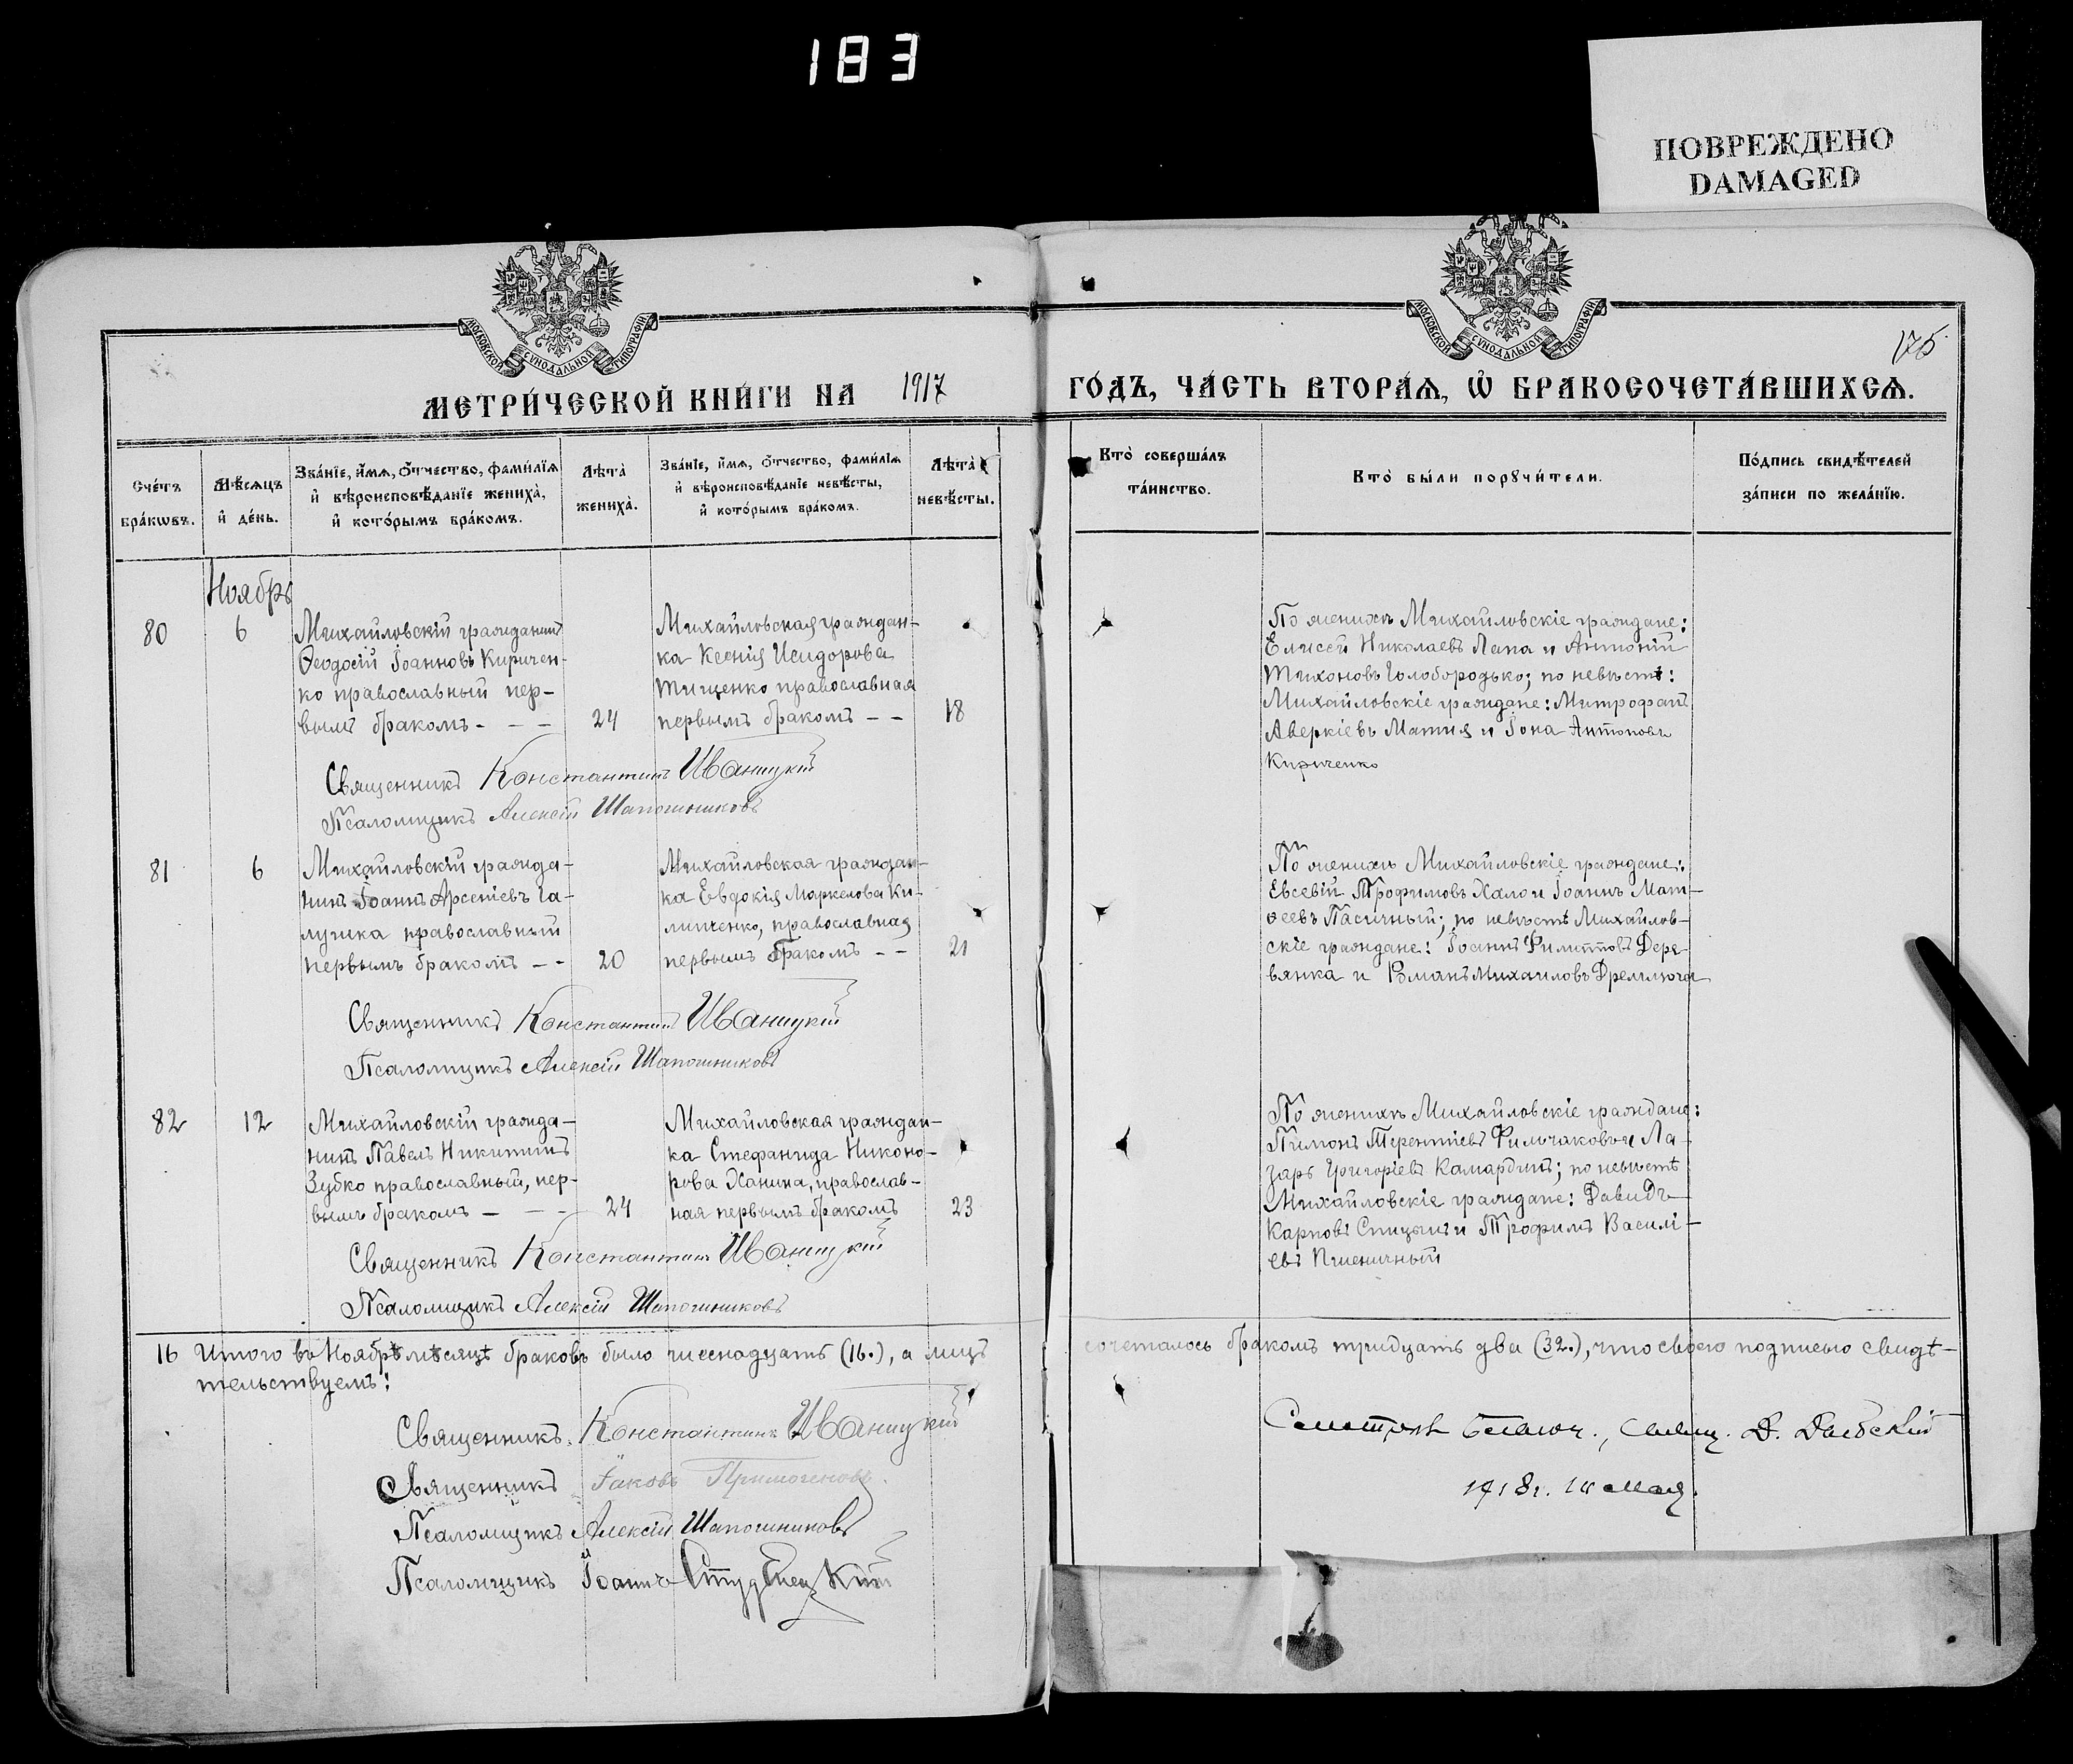 183
ПОВРЕЖДЕНО
DAMAGED
МОСКОВСКОЙ СѴНОДАЛЬНОЙ ТИПОГРАФІИ
МОСКОВСКОЙ СѴНОДАЛЬНОЙ ТИПОГРАФІИ
175
МЕТРИ́ЧЕСКОЙ КНИ́ГИ НА 1917 ГО́ДЪ, ЧА́СТЬ ВТОРА́Ѧ, Ѽ БРАКОСОЧЕТА́ВШИХСѦ.
Сче́тъ бра́кѡвъ.
Мѣ́сяцъ и҆ де́нь.
Зва́нїе, и҆́мѧ, ѻ҆́тчество, фами́лїѧ
и҆ вѣроисповѣ́данїе жениха̀,
и҆ кото́рымъ бра́комъ.
Лѣта̀ жениха̀.
Зва́нїе, и҆́мѧ, ѻ҆́тчество, фами́лїѧ
и҆ вѣроисповѣ́данїе невѣ́сты,
и҆ кото́рымъ бра́комъ.
Лѣта̀ невѣ́сты.
Кто̀ соверша́лъ
та́инство.
Кто̀ бы́ли порꙋчи́тели.
По́дпись свидѣ́телей
за́писи по жела́нїю.
Ноябрь
80
6
Михайловскій гражданинъ
Ѳеодосій Іоанновъ Киричен-
ко православный пер-
вымъ бракомъ - - -
24
Михайловская граждан-
ка Ксенія Исидорова
Тищенко православная
первымъ бракомъ - -
18
По женихѣ Михайловскіе граждане:
Елисей Николаевъ Лапа и Антоній
Тихоновъ Голобородько; по невѣстѣ:
Михайловскіе граждане: Митрофанъ
Аверкіевъ Матия и Іона Антоновъ
Кириченко
Священникъ Константинъ Иваницкій
Псаломщикъ Алексій Шапошниковъ
81
6
Михайловскій гражда-
нинъ Іоаннъ Арсеніевъ Га-
лушка православный
первымъ бракомъ - -
20
Михайловская граждан-
ка Евдокія Маркелова Ки-
липченко, православная
первымъ бракомъ - -
21
По женихѣ Михайловскіе граждане:
Евсевій Трофимовъ Хало и Іоаннъ Мат-
ѳеевъ Пасичный; по невѣстѣ Михайлов-
скіе граждане: Іоаннъ Филипповъ Дере-
вянка и Романъ Михаиловъ Дремлюга
Священникъ Константинъ Иваницкій
Псаломщикъ Алексій Шапошниковъ
82
12
Михайловскій гражда-
нинъ Павелъ Никитинъ
Зубко православный, пер-
вымъ бракомъ - - -
24
Михайловская граждан-
ка Стефанида Никоно-
рова Ханина, православ-
ная первымъ бракомъ
23
По женихѣ Михайловскіе граждане:
Пимонъ Терентіевъ Фильчаковъ и Ла-
зарь Григоріевъ Камардинъ; по невѣстѣ
Михайловскіе граждане: Давидъ
Карповъ Спицынъ и Трофимъ Василі-
евъ Пшеничный
Священникъ Константинъ Иваницкій
Псаломщикъ Алексій Шапошниковъ
16 Итого въ Ноябрѣ мѣсяцѣ браковъ было шеснадцать (16.), а лицъ сочеталось бракомъ тридцать два (32.), что своею подписью свидѣ-
тельствуемъ:
Священникъ Константинъ Иваницкій
Священникъ Іаковъ
Псаломщикъ Алексій Шапошниковъ
Псаломщикъ Іоаннъ
1918 г. мая.